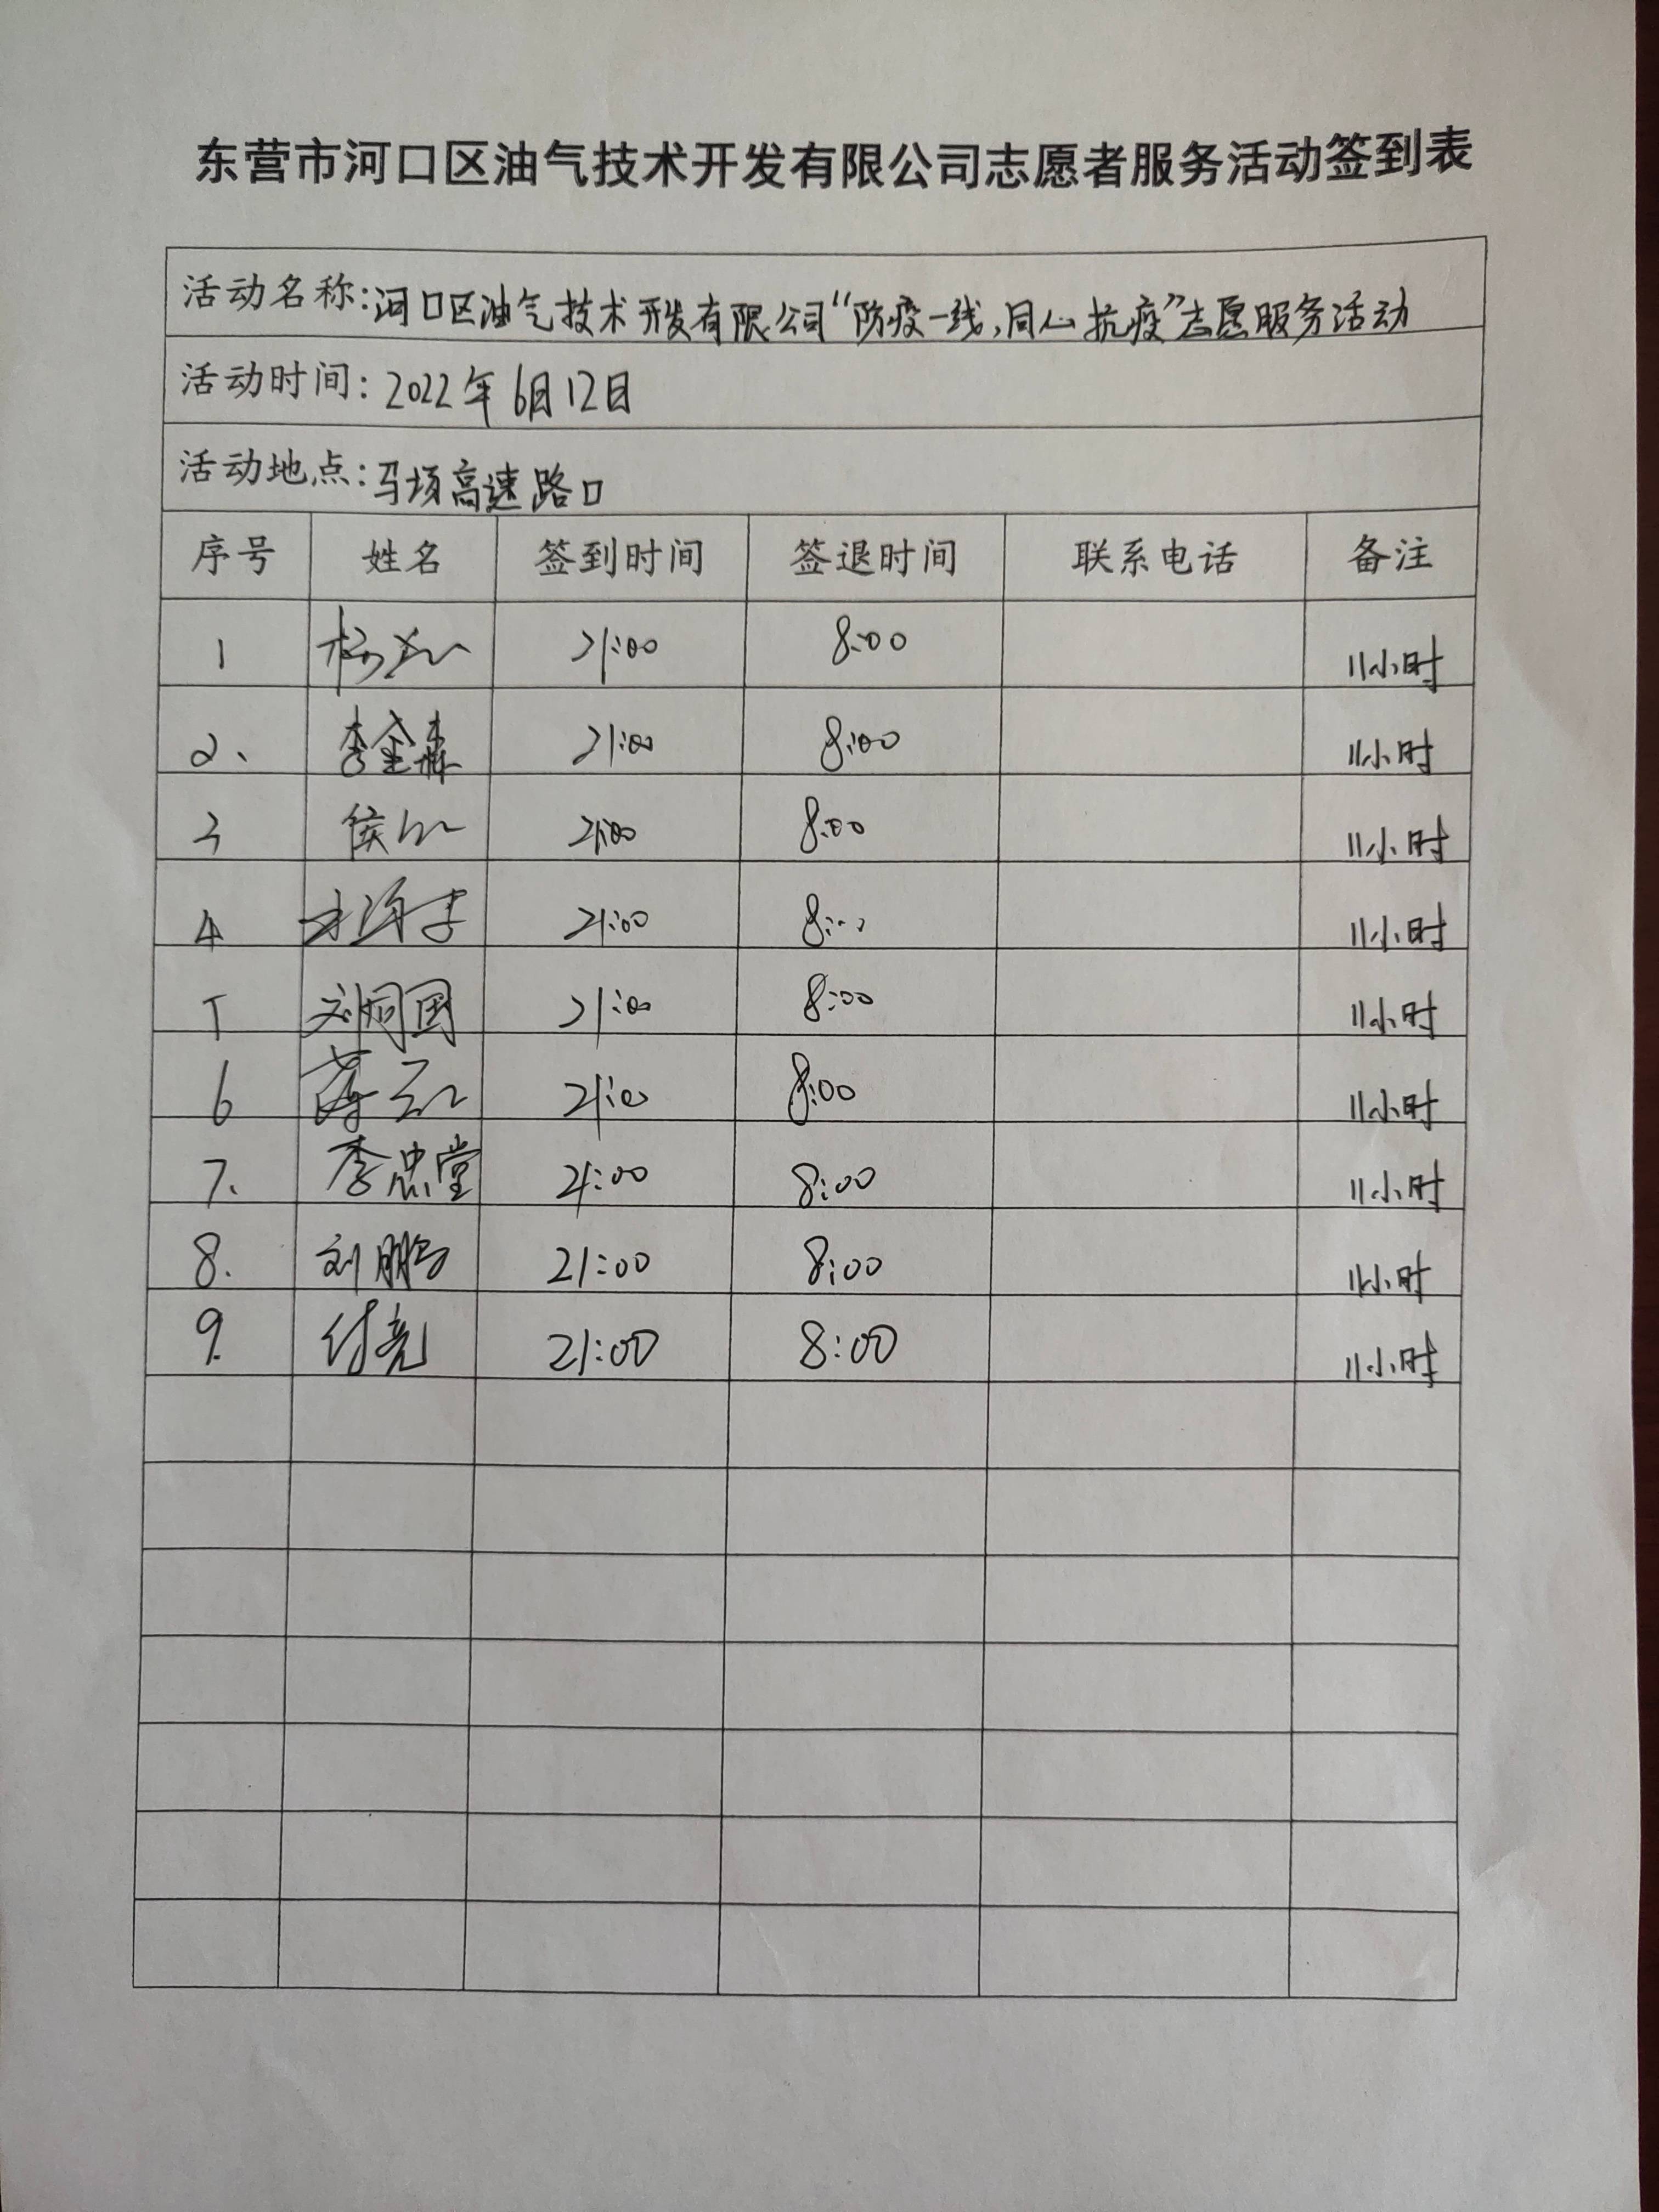 东营市河口区油气技术开发有限公司志愿者服务活动签到表
活动名称:河口区油气技术开发有限公司“防疫一线,同心抗疫”志愿服务活动
活动时间:2022年6月12日
活动地点:马场高速路口
序号 姓名 签到时间 签退时间 联系电话 备注
1 杨 21:00 8:00 11小时
2、 李金森 21:00 8:00 11小时
3 侯 21:00 8:00 11小时
4 21:00 8:00 11小时
5 刘炯国 21:00 8:00 11小时
6 21:00 8:00 11小时
7. 李忠堂 21:00 8:00 11小时
8. 刘鹏 21:00 8:00 11小时
9. 付亮 21:00 8:00 11小时